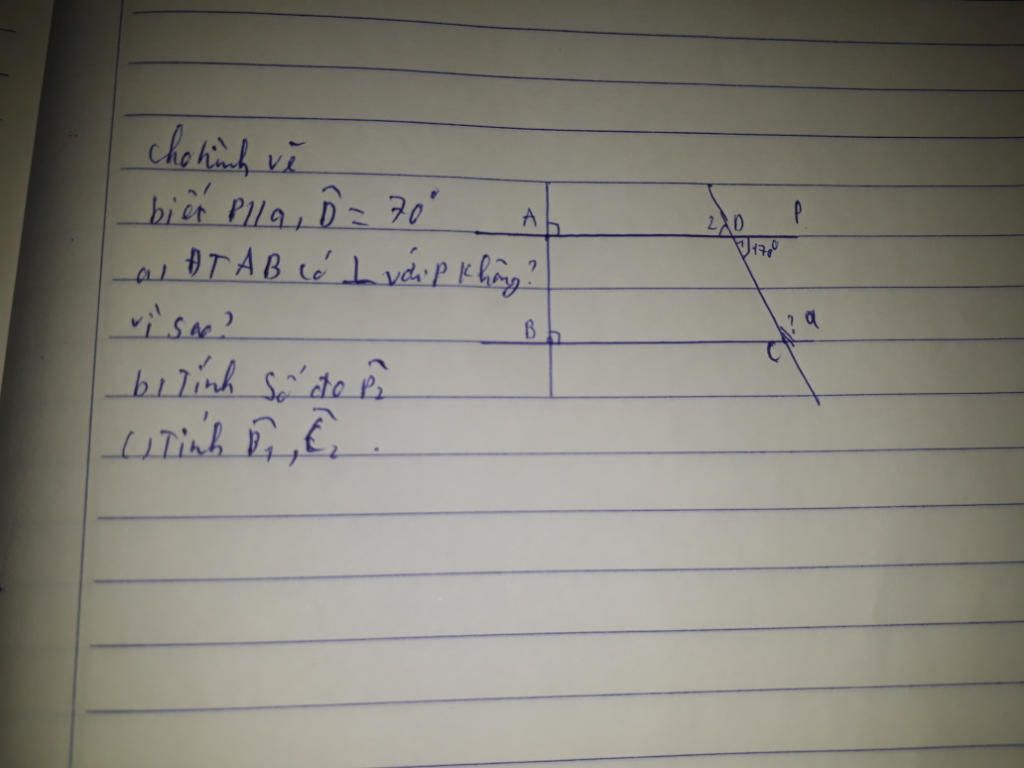 Cho hình vẽ
biết P//q, D̂ = 70°
a) ĐT AB có ⊥ với P không?
vì sao?
b) Tính số đo D̂₂
c) Tính D̂₁, Ĉ₂.
A
2 D
P
1 70°
B
?
q
C